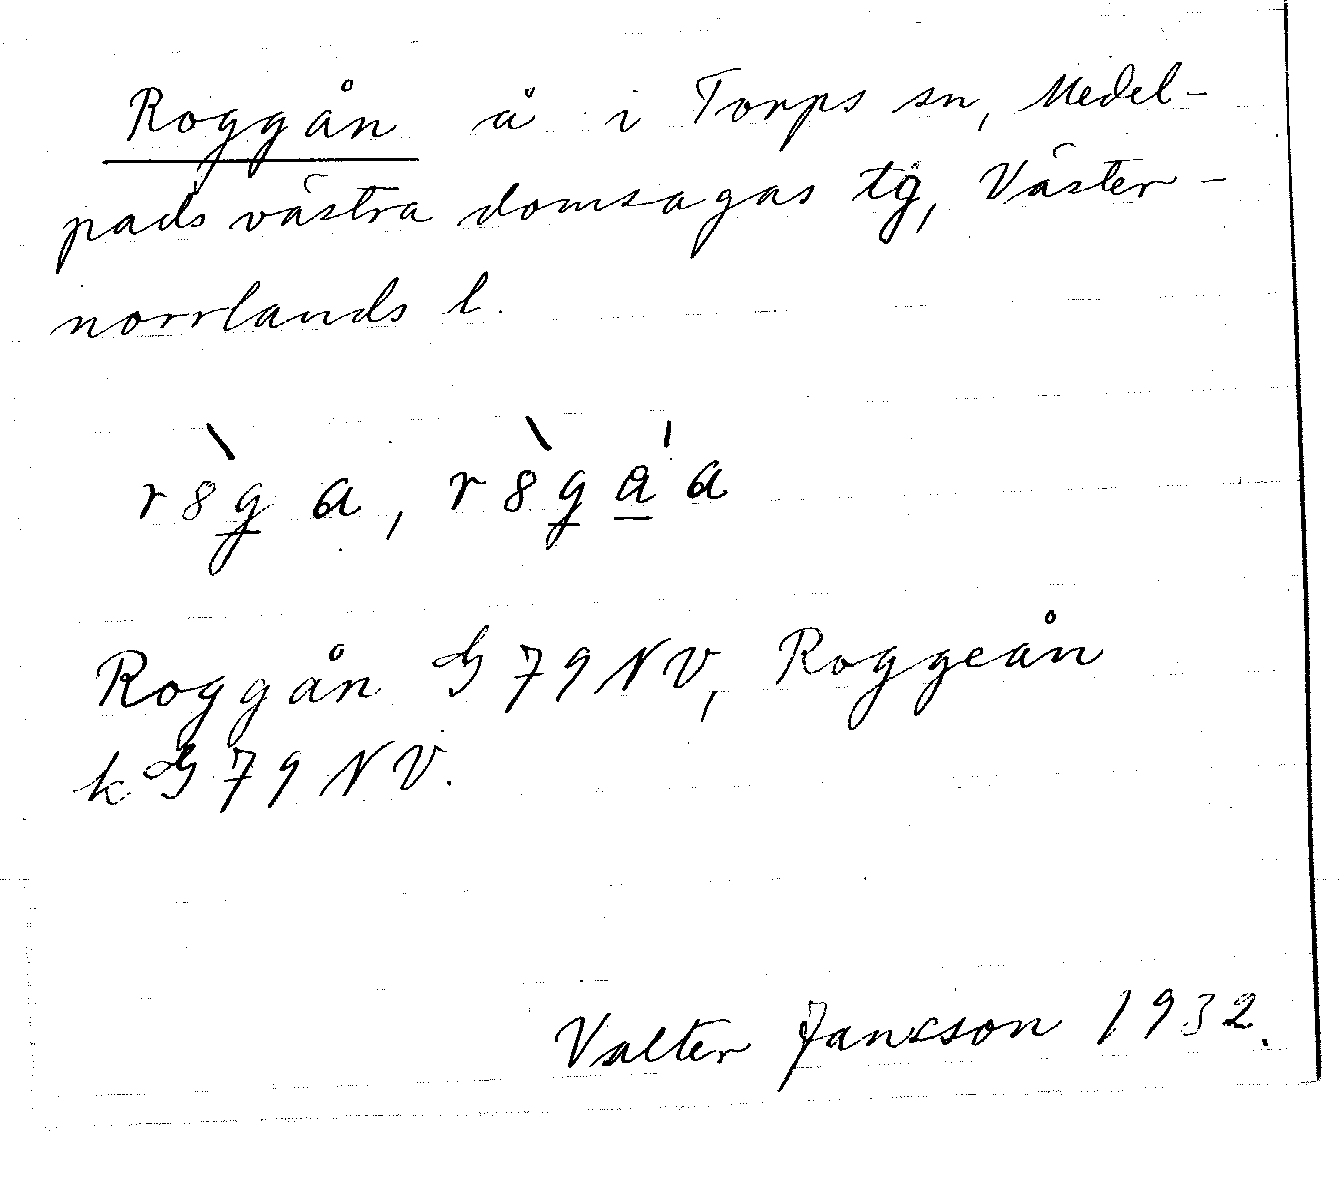 Roggån å i Torps sn, Medel-
pads västra domsagas tg, Väster-
norrlands l.
Roggån G 79 NV, Roggeån
k G 79 NV.
Valter Jansson 1932.